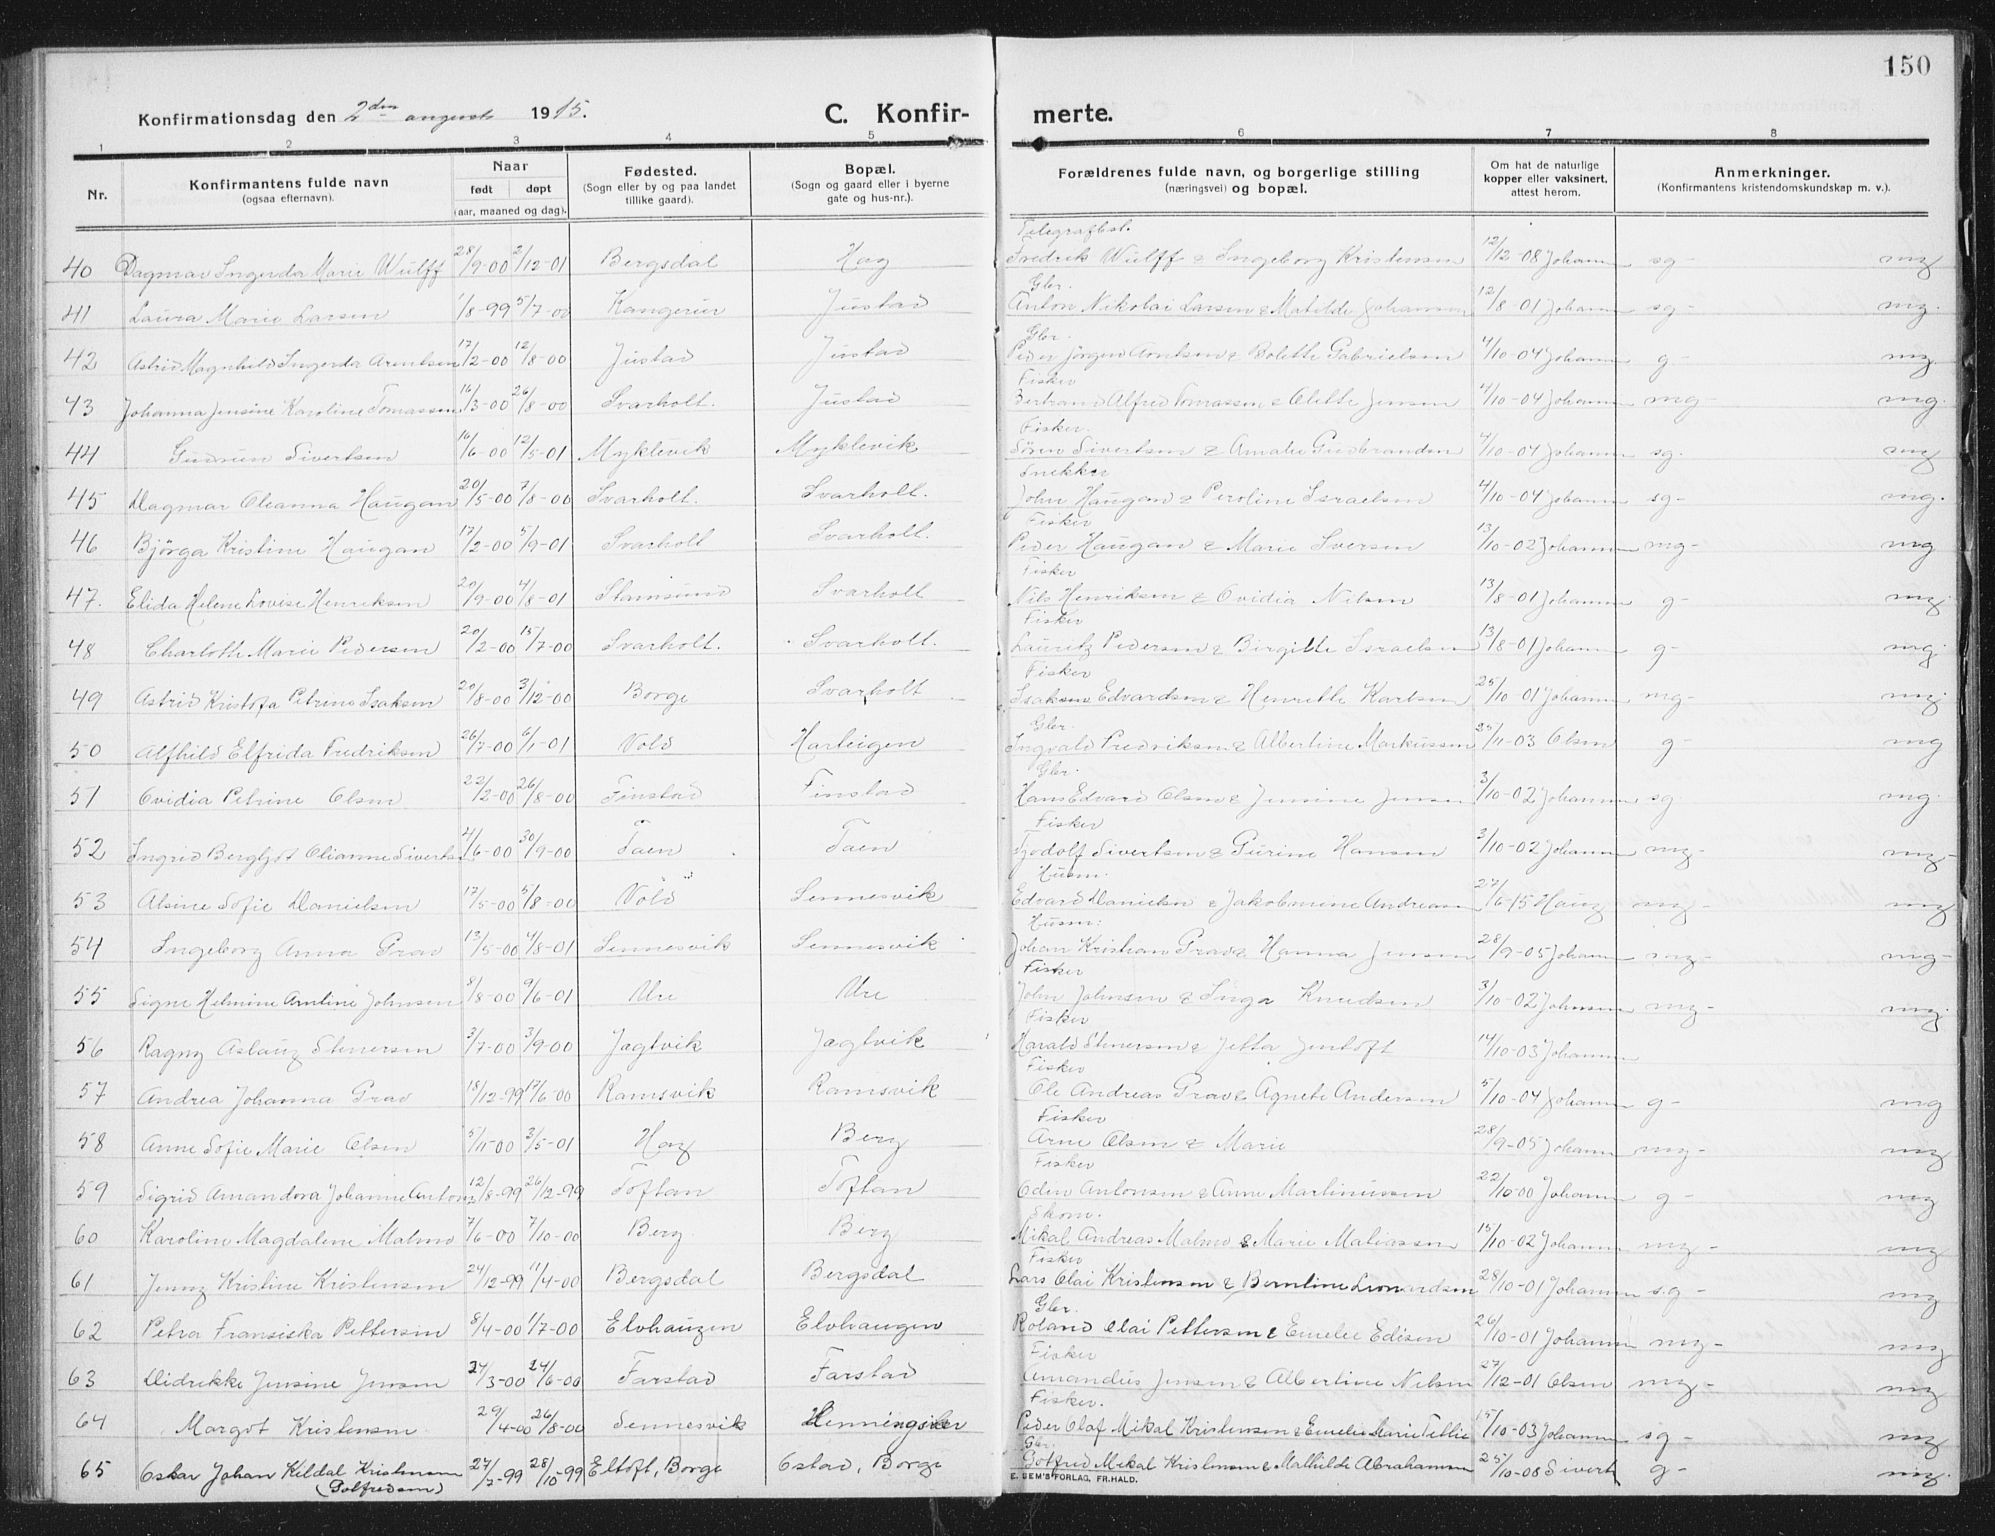 150
Konfirmationsdag den 2den august 1915. C. Konfir- merte.
1 2 3 4 5 6 7 8
Nr. Konfirmantens fulde navn (ogsaa efternavn). Naar født døpt (aar, maaned og dag). Fødested. (Sogn eller by og paa landet tillike gaard). Bopæl. (Sogn og gaard eller i byerne gate og hus-nr.). Forældrenes fulde navn, og borgerlige stilling (næringsvei) og bopæl. Om hat de naturlige kopper eller vaksinert, attest herom. Anmerkninger. (Konfirmantens kristendomskundskap m. v.).
Telegrafbst.
40 Dagmar Ingerda Marie Wulff 28/9-00 2/12-01 Bergsdal Hag Fredrik Wulff & Ingeborg Kristensen 12/12-08 Johansen sg- mg
Gbr.
41 Laura Marie Larsen 1/8-99 5/7-00 Kangerur Justad Anton Nikolai Larsen & Matilde Johansen 12/8-01 Johansen sg- mg.
Gbr.
42 Astrid Magnhild Ingerda Arntsen 17/2-00 12/8-00 Justad Justad Peder Jörgen Arntsen & Bolette Gabrielsen 4/10-04 Johansen g- mg
Fisker
43 Johanna Jensine Karoline Tomassen 16/3-00 26/8-00 Svarholt. Justad Bertrand Alfred Tomassen & Olette Jensen 4/10-04 Johansen mg- mg.
Fisker.
44 Gudrun Sivertsen 16/6-00 12/5-01 Myklevik Myklevik Sören Sivertsen & Amalie Gudbrandsen 4/10-04 Johansen sg. mg
Snekker
45 Dagmar Oleanna Haugan 20/5-00 7/8-00 Svarholt. Svarholt. John Haugan & Peroline Israelsen 4/10-04 Johansen sg- mg.
Fisker
46 Bjørga Kristine Haugan 17/2-00 5/9-01 Svarholt Svarholt. Peder Haugan & Marie Iversen 13/10-02 Johansen mg- mg
Fisker
47. Elida Helene Lovise Henriksen 20/9-00 4/8-01 Stamsund Svarholt Nils Henriksen & Ovidia Nilsen 13/8-01 Johansen g- mg.
Fisker
48 Charloth Marie Pedersen 20/2-00 15/7-00 Svarholt. Svarholt. Lauritz Pedersen & Birgitte Israelsen 13/8-01 Johansen g- mg.
Fisker
49 Astrid Kristofa Petrine Isaksen 20/8-00 3/12-00 Borge Svarholt Isaksen Edvardsen & Henriette Karlsen 25/10-01 Johansen mg- mg.
Gbr.
50 Alfhild Elfrida Fredriksen 26/7-00 6/1-01 Vold Harteigen Ingvald Fredriksen & Albertine Markussen 25/11-03 Olsen g- mg
Gbr.
51 Ovidia Petrine Olsen 22/2-00 26/8-00 Finstad Finstad Hans Edvard Olsen & Jensine Jensen 3/10-02 Johansen sg mg.
Fisker
52 Ingrid Bergljot Olianne Sivertsen 4/6-00 30/9-00 Taen Taen Tjodolf Sivertsen & Gurine Hansen 3/10-02 Johansen mg- mg-
Husm.
53 Alsine Sofie Danielsen 17/5-00 5/8-00 Vold Sennesvik Edvard Danielsen & Jakobmine Andreasen 27/6-15 Haug mg- mg
Husm:
54 Ingeborg Anna Grav 13/5-00 4/8-01 Sennesvik Sennesvik Johan Kristian Grav & Hanna Jensen 28/9-05 Johansen mg- mg-
Fisker
55 Signe Helmine Arntine Johnsen 8/8-00 9/6-01 Ure Ure John Johnsen & Inga Knudsen 3/10-02 Johnsen mg- mg.
Fisker
56 Ragny Aslaug Stenersen 3/7-00 3/9-00 Jagtvik Jagtvik Harald Stenersen & Jetta Jentoft 14/10-03 Johansen
Fisker
57 Andrea Johanna Grav 18/12-99 17/6-00 Ramsvik Ramsvik Ole Andreas Grav & Agnete Andersen 5/10-04 Johansen g- mg
Fisker
58 Anne Sofie Marie Olsen 5/11-00 3/5-01 Hag Berg Arne Olsen & Marie 28/9-05 Johansen mg- mg
Fisker
59 Sigrid Amandora Johanne Antonsen 12/8-99 26/12-99 Toftan Toftan Odin Antonsen & Anne Martinussen 22/10-00 Johansen g- mg
Skom.
60 Karoline Magdalene Malmo 7/6-00 7/10-00 Berg Berg Mikal Andreas Malmo & Marie Matiassen 15/10-02 Johansen mg- mg
Fisker
61 Jenny Kristine Kristensen 24/12-99 11/4-00 Bergsdal Bergsdal Lars Olai Kristensen & Berntine Leonardsen 28/10-01 Johansen s.g- mg
Gbr.
62 Petra Fransiska Pettersen 8/4-00 1/7-00 Elvhaugen Elvhaugen Roland Olai Pettersen & Emelie Edisen 26/10-01 Johansen mg- mg
Fisker
63 Didrikke Jensine Jensen 24/3-00 24/6-00 Farstad Farstad Amandus Jensen & Albertine Nilsen 27/12-01 Olsen mg- mg
Fisker.
64 Margot Kristensen 29/4-00 26/8-00 Sennesvik Henningsvær Peder Olaf Mikal Kristensen & Emelie Marie Tetlie 15/10-03 Johansen sg- mg
Gbr.
65 Oskar Johan Kildal Kristensen (Golfredsen) 27/7-99 28/10-99 Eltoft, Borge Ostad, Borge Gotfred Mikal Kristensen & Mathilde Abrahamsen 25/10-08 Sivert g- mg.
E. SEM'S FORLAG, FR.HALD.